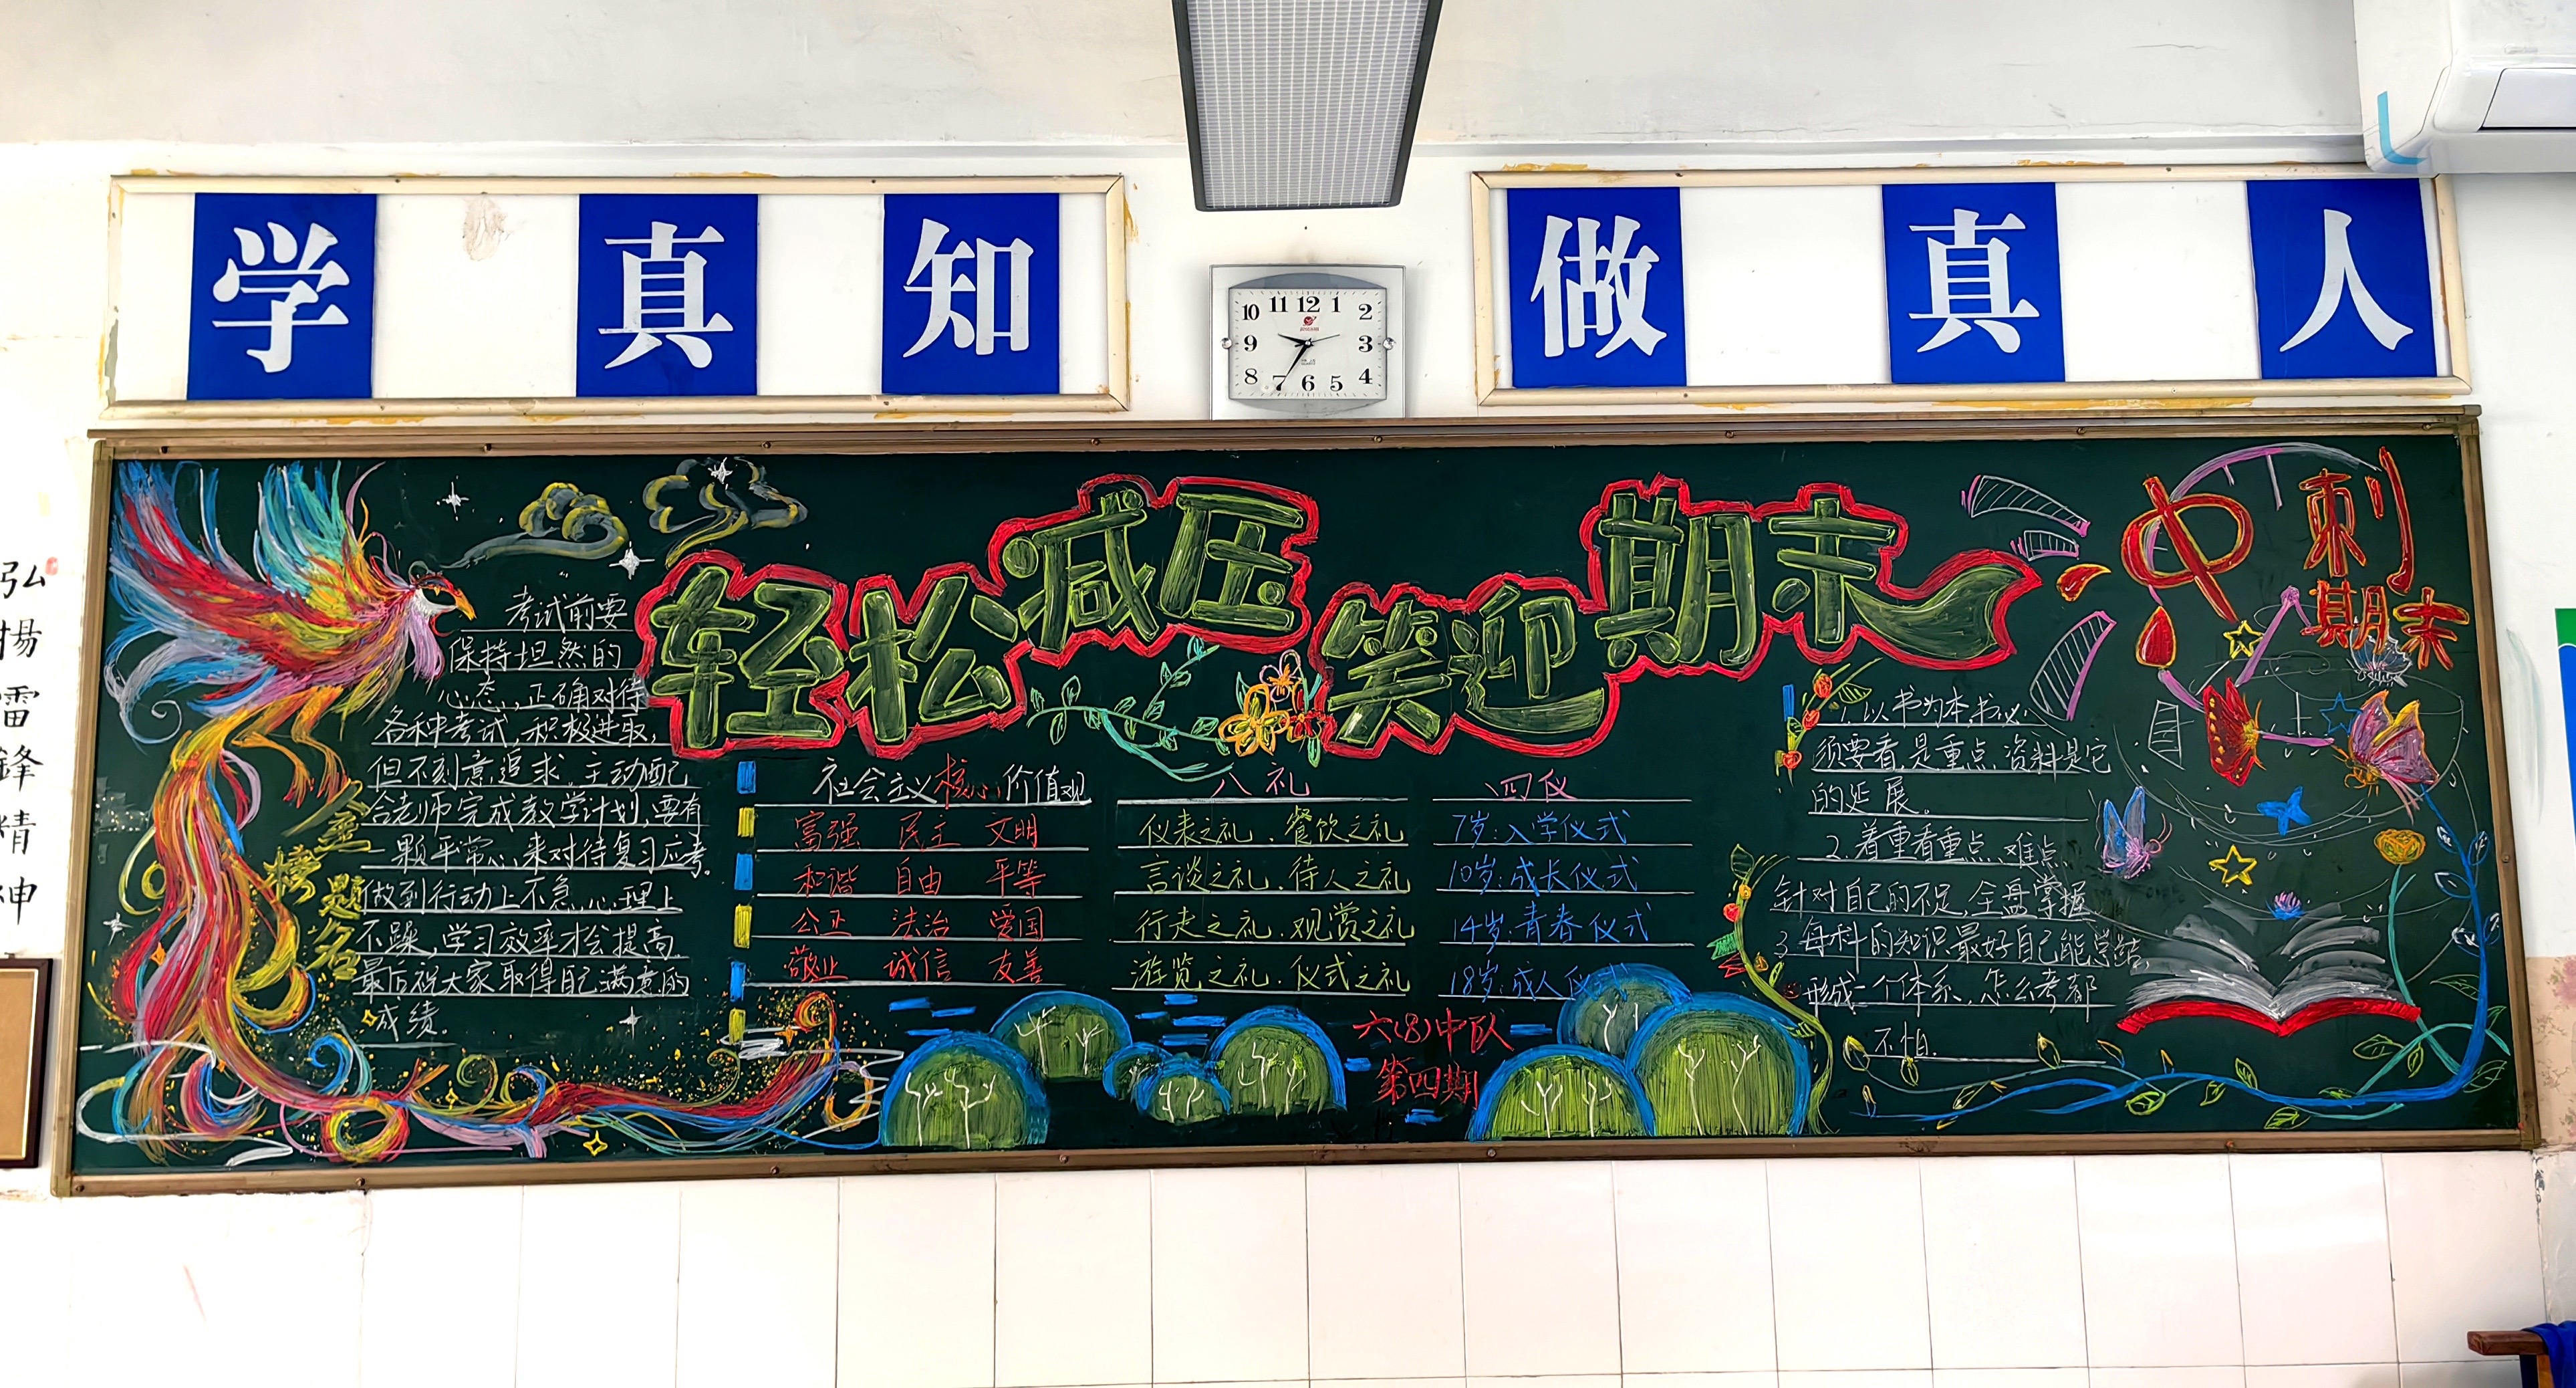 学真知
做真人
10 11 12 1 2
9 3
8 7 6 5 4
弘揚雷鋒精神
轻松减压
笑迎期末
冲刺
期末
考试前要
保持坦然的
心态,正确对待
各种考试,积极进取,
但不刻意追求,主动配
合老师完成教学计划,要有
一颗平常心,来对待复习应考。
做到行动上不急,心理上
不躁,学习效率才会提高,
最后祝大家取得自己满意的
成绩。
金榜题名
社会主义核心价值观
富强 民主 文明
和谐 自由 平等
公正 法治 爱国
敬业 诚信 友善
八礼
仪表之礼、餐饮之礼
言谈之礼、待人之礼
行走之礼、观赏之礼
游览之礼、仪式之礼
四仪
7岁:入学仪式
10岁:成长仪式
14岁:青春仪式
18岁:成人仪式
六(8)中队
第四期
1.以书为本,书必
须要看,是重点,资料是它
的延展。
2.着重看重点、难点
针对自己的不足,全盘掌握
3.每科的知识最好自己能总结,
形成一个体系,怎么考都
不怕.